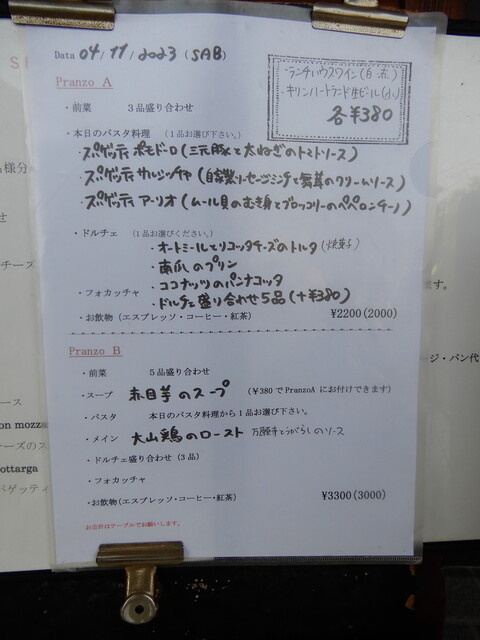 Data 04/11/2023 (SAB)
ランチハウスワイン(白・赤)
キリンハートランド生ビール(小)
各¥380
Pranzo A
・前菜 3品盛り合わせ
・本日のパスタ料理 (1品お選び下さい。)
・スパゲッティ ポモドーロ(三元豚と太ねぎのトマトソース)
・スパゲッティ サルシッチャ(自家製ソーセージミンチと舞茸のクリームソース)
・スパゲッティ アーリオ(ムール貝のむき身とブロッコリーのペペロンチーノ)
・ドルチェ (1品お選びください。)
・オートミールとリコッタチーズのトルタ(焼菓子)
・南瓜のプリン
・ココナッツのパンナコッタ
・フォカッチャ
・ドルチェ盛り合わせ5品(+¥380)
・お飲物(エスプレッソ・コーヒー・紅茶) ¥2200(2000)
Pranzo B
・前菜 5品盛り合わせ
・スープ 赤目芋のスープ (¥380でPranzoAにお付けできます)
・パスタ 本日のパスタ料理から1品お選び下さい。
・メイン 大山鶏のロースト 万願寺とうがらしのソース
・ドルチェ盛り合わせ(3品)
・フォカッチャ
・お飲物(エスプレッソ・コーヒー・紅茶) ¥3300(3000)
お会計はテーブルでお願いします。
S
様分
チーズ
ース
on mozza
ーズのス
ottarga
パゲッティ
ます。
ージ・パン代